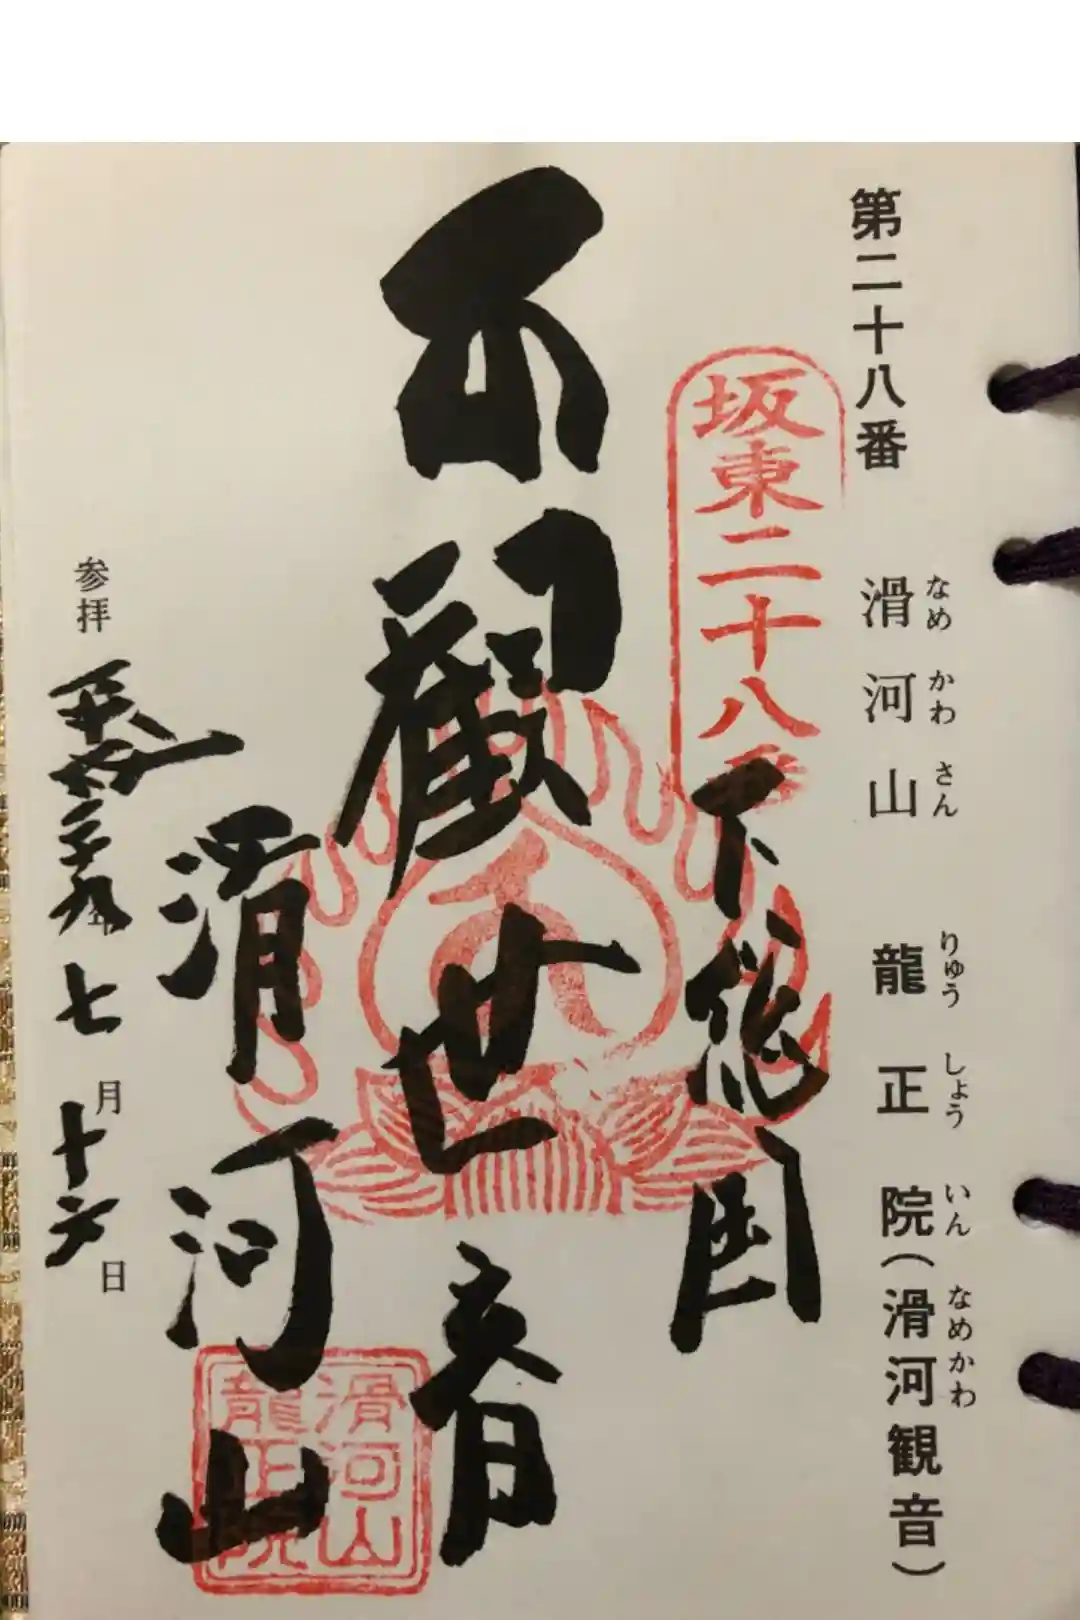 第二十八番 滑河山 龍正院(滑河観音)
なめかわさん りゅうしょういん なめかわ
坂東二十八番
下総国
観世音
滑河山
滑河山
龍正院
参拝 平成二十九年七月十六日